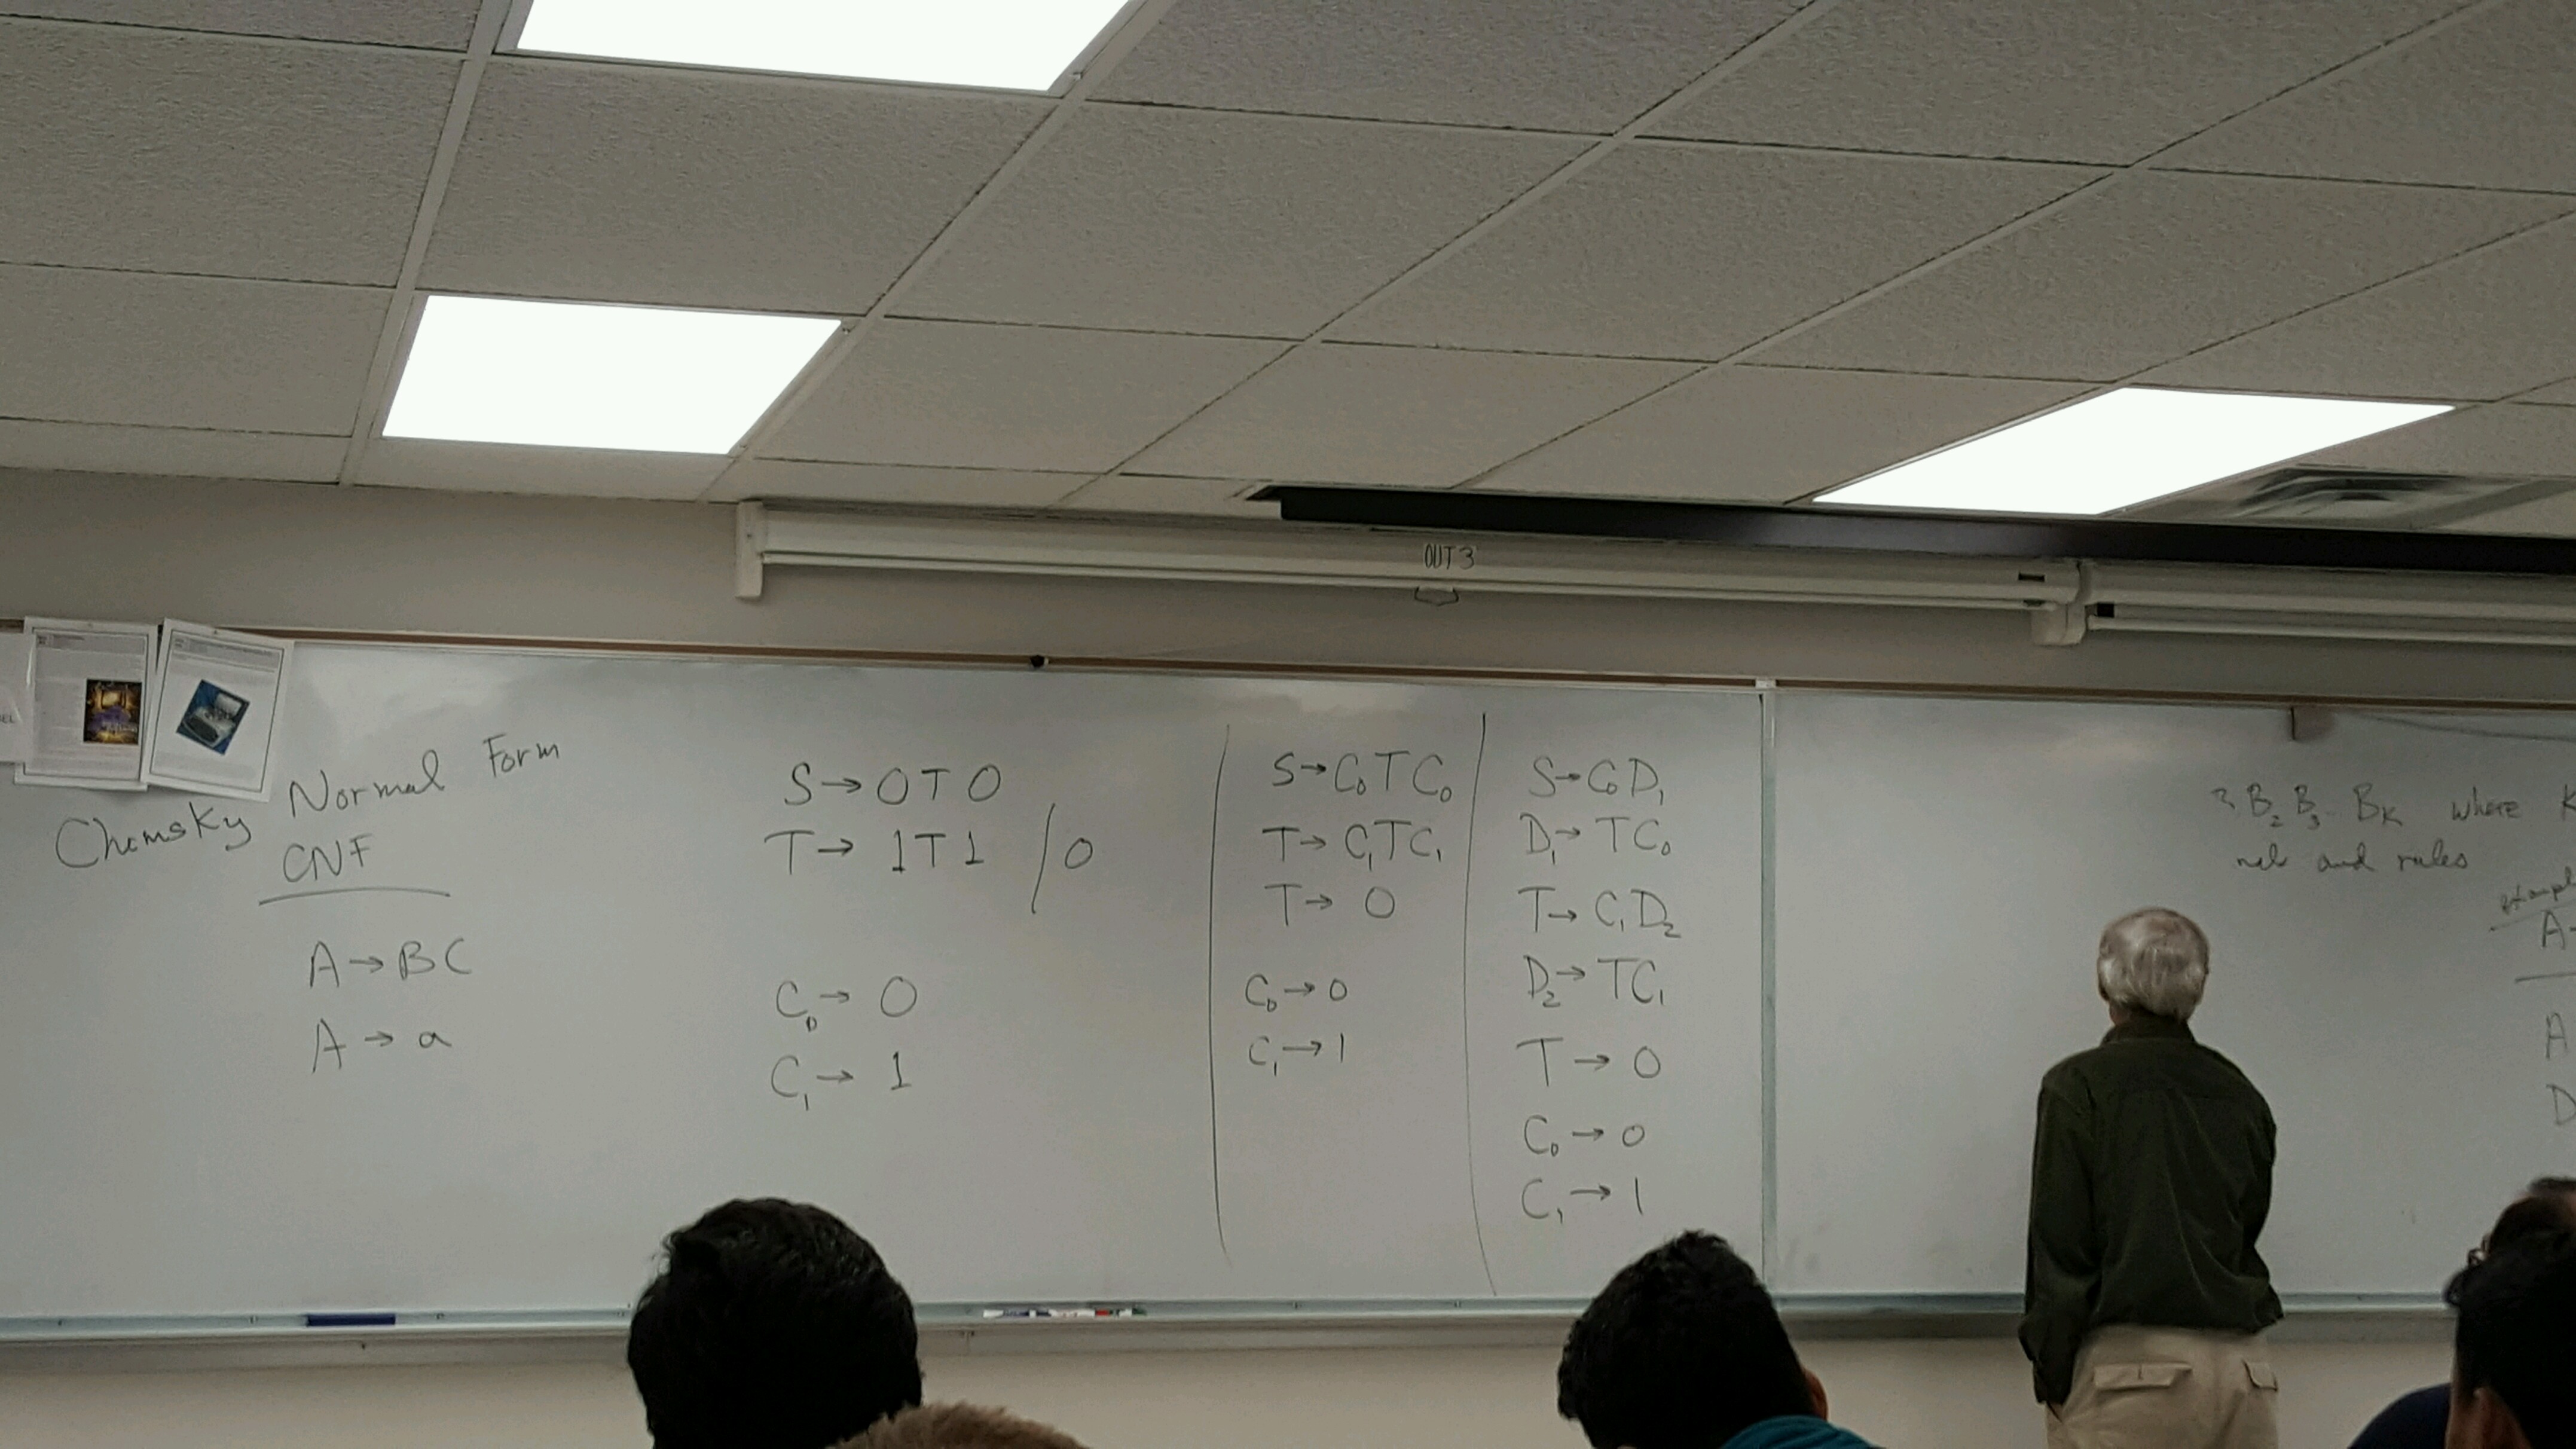 OUT 3
Chomsky Normal Form
CNF
A → BC
A → a
S → 0T0
T → 1T1 / 0
C₀ → 0
C₁ → 1
S → C₀TC₀
T → C₁TC₁
T → 0
C₀ → 0
C₁ → 1
S → C₀D₁
D₁ → TC₀
T → C₁D₂
D₂ → TC₁
T → 0
C₀ → 0
C₁ → 1
B₂ B₃ .. Bₖ where K
and rules
A
A
D